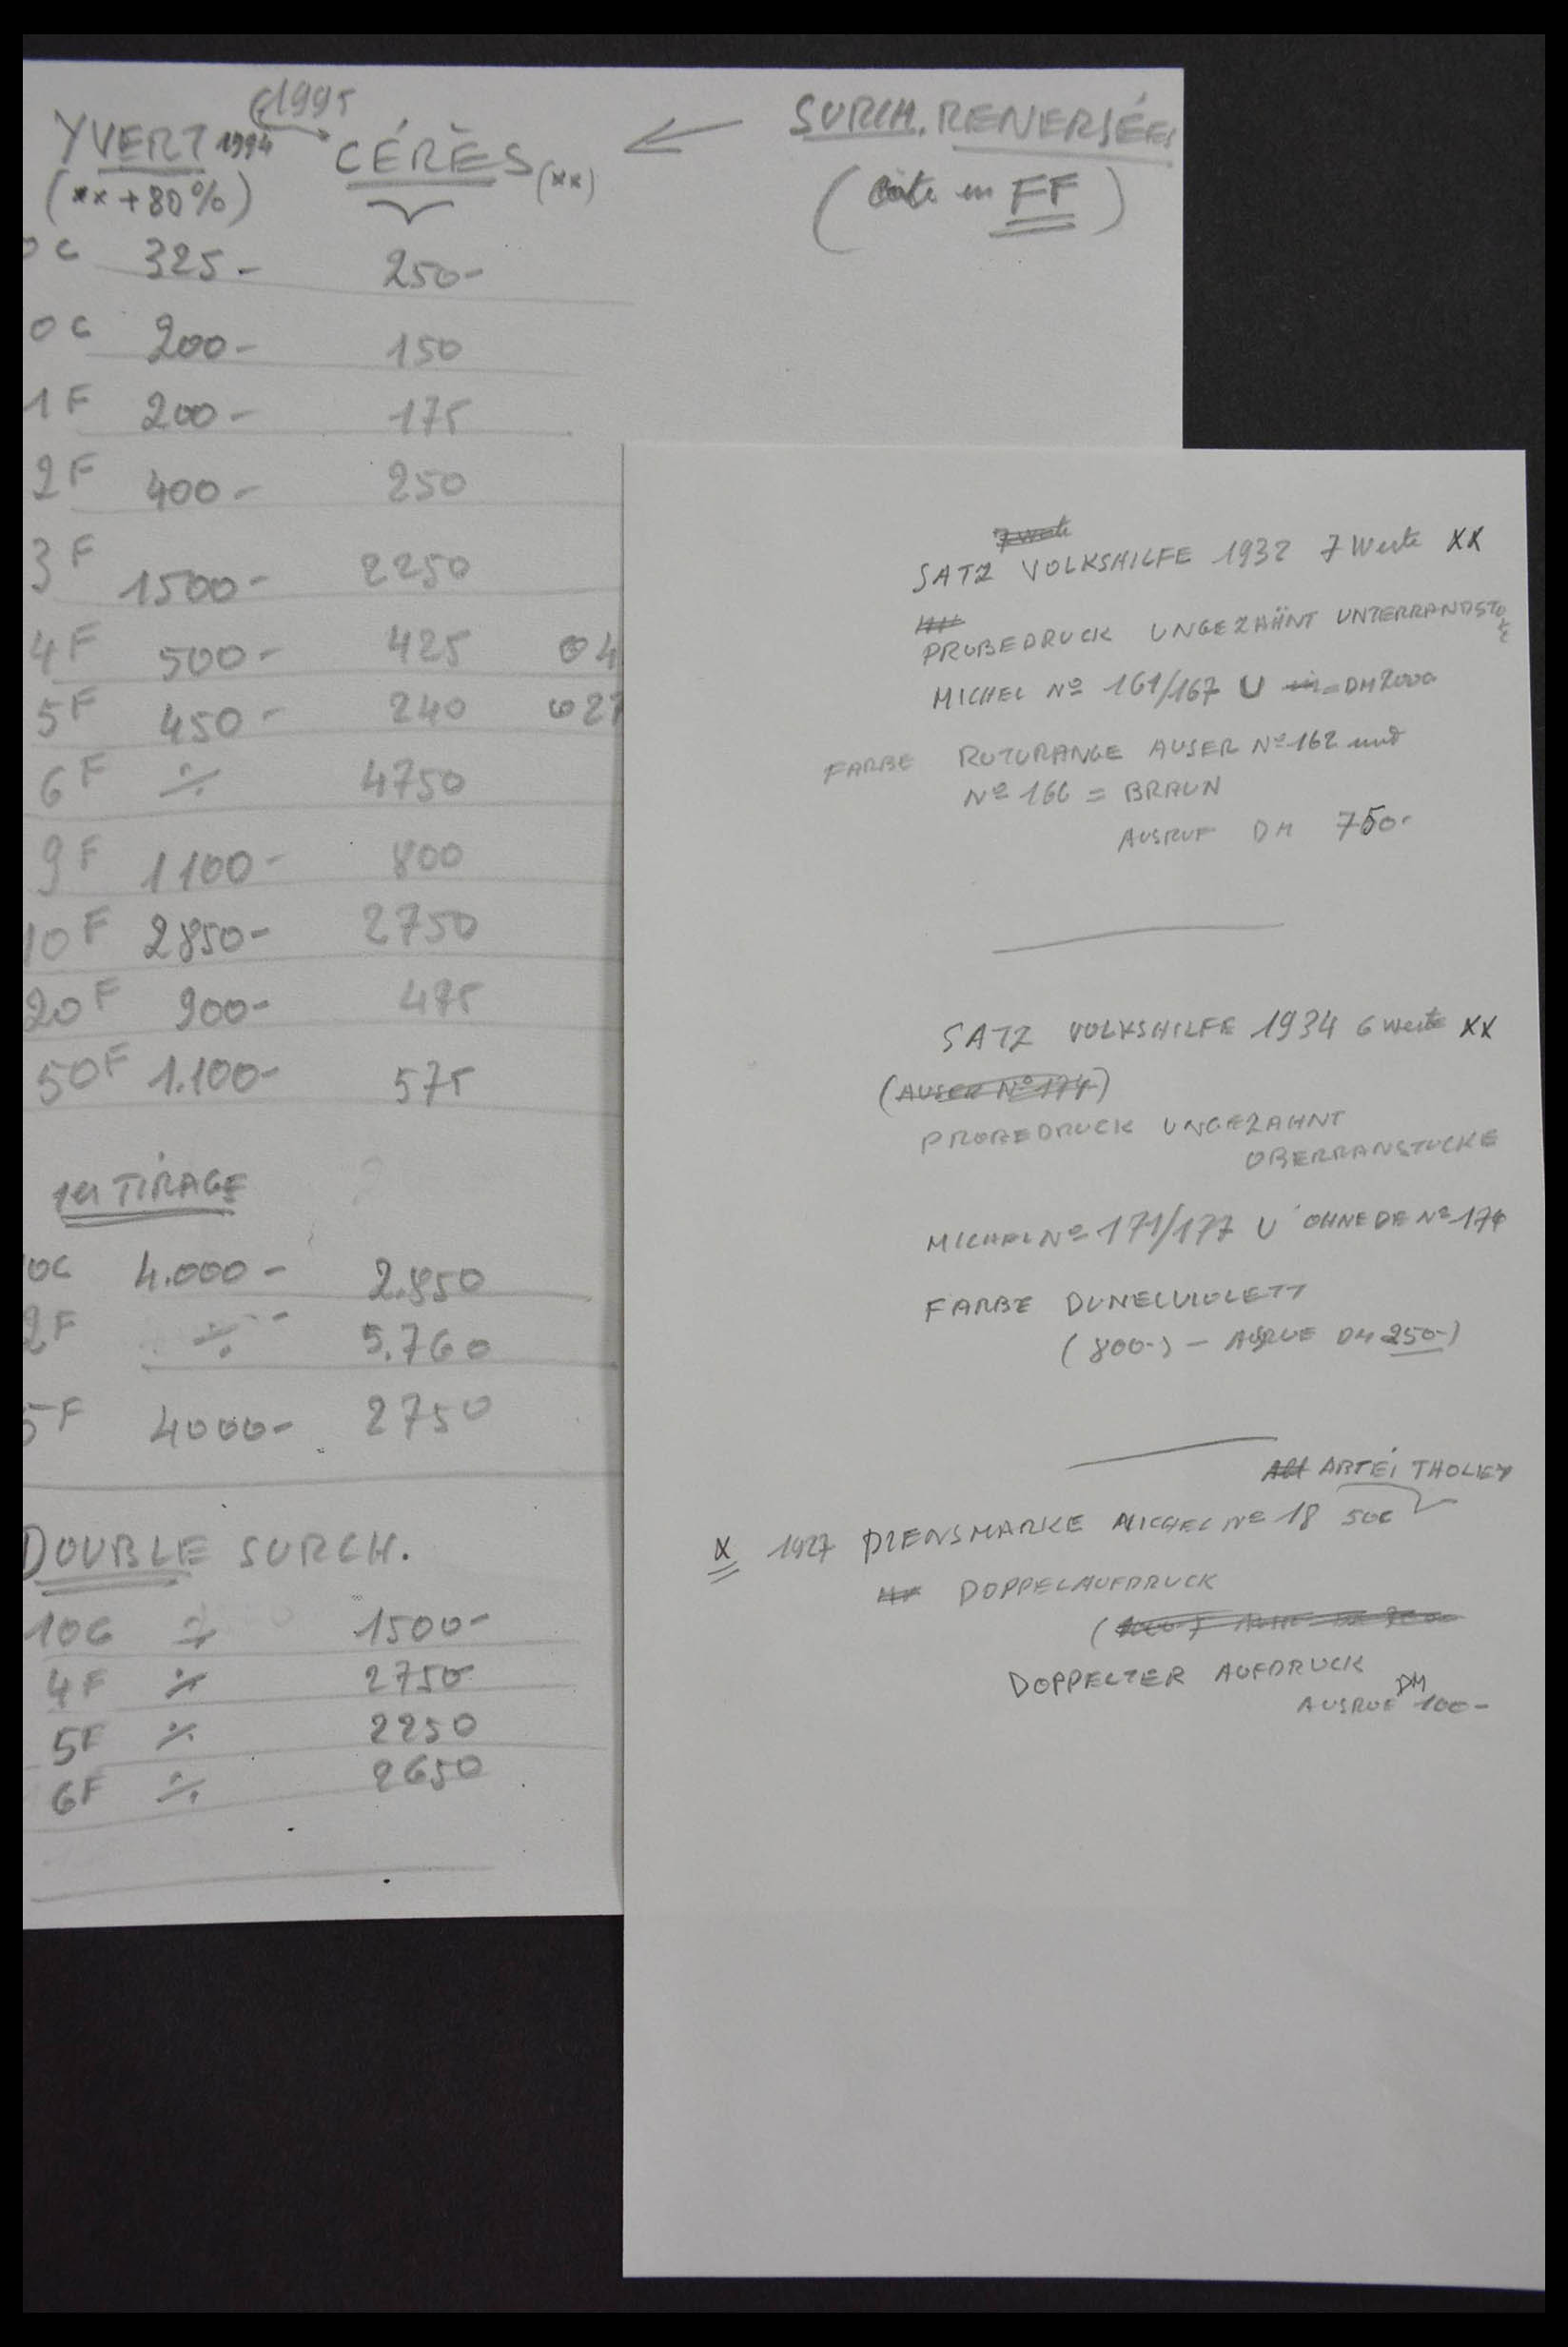 1995
YVERT 1994 CÉRÈS (xx) ← SURCH. RENERSÉES
(xx + 80%) (côte en FF)
0C 325- 250-
0C 200- 150
1F 200- 175
2F 400- 250
3F 1500- 2250
4F 500- 425 04
5F 450- 240 027
6F ./. 4750
9F 1100- 800
10F 2850- 2750
20F 900- 475
50F 1.100- 575
1er TIRAGE
0C 4.000- 2.850
2F ./. 5.760
5F 4000- 2750
DOUBLE SURCH.
10C ./. 1500-
4F ./. 2750
5F ./. 2250
6F ./. 2650
SATZ VOLKSHILFE 1932 7 Werte XX
PROBEDRUCK UNGEZÄHNT
MICHEL Nº 161/167 U = DM 2000
FARBE ROTORANGE AUSER Nº 162 und
Nº 166 = BRAUN
AUSRUF DM 750-
SATZ VOLKSHILFE 1934 6 Werte XX
(AUSER Nº 174)
PROBEDRUCK UNGEZAHNT
OBERRANSTUCKE
MICHEL Nº 171/177 U OHNE DE Nº 174
FARBE
(800-) - AUSRUF DM 250-)
ABTEI THOLEY
X 1927 DIENSMARKE MICHEL Nº 18 50C
DOPPELAUFDRUCK
DOPPELTER AUFDRUCK
AUSRUF DM 100-